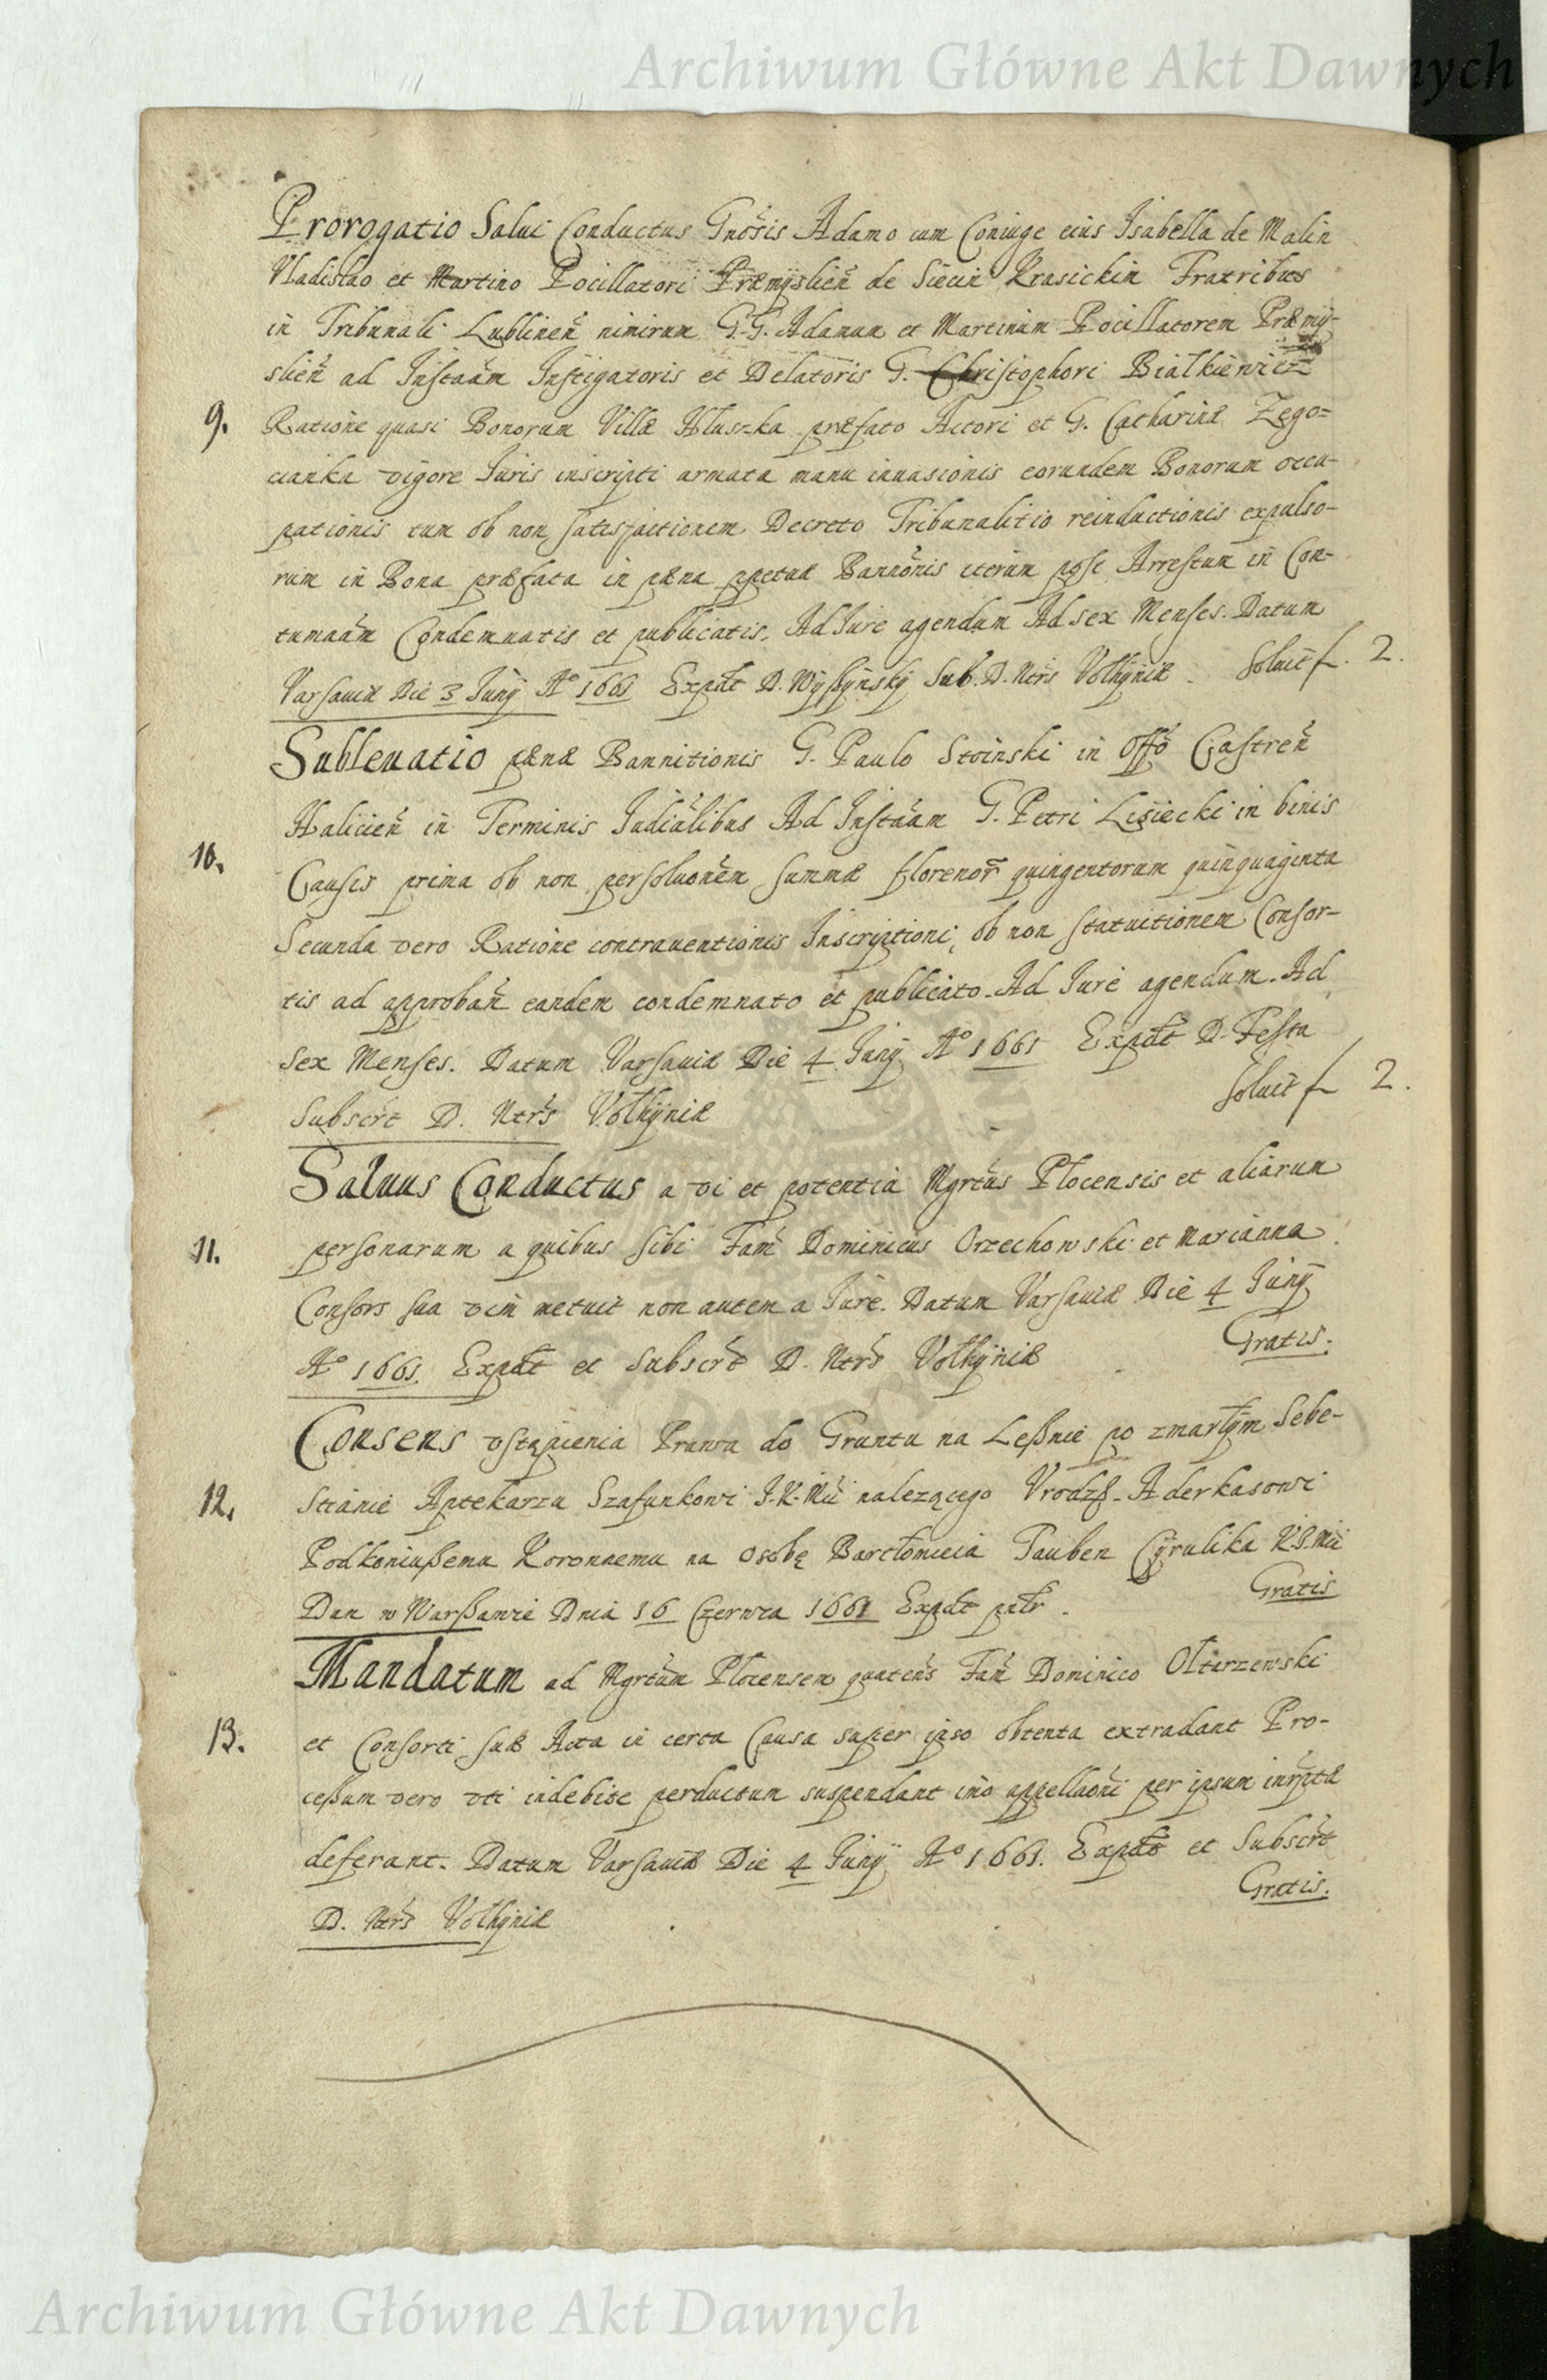 Archiwum Główne Akt Dawnych
Prorogatio Salui Conductus Gnősis Adamo cum Coniuge eius Isabella de Malin
Vladislao et Martino Pocillatori Præmÿslień de Siecin Krasickim Fratribus
in Tribunali Lublineń nimirum G.G. Adamum et Martinum Pocillatorem Præmÿ-
slień ad Instaãm Instigatoris et Delatoris G. Christophori Białkiewicz
9. Ratione quasi Bonorum Villæ Hluszka præfato Actori et G. Catharinæ Zego=
cianka vigore Iuris inscripti armata manu inuasionis eorundem Bonorum occu-
pationis tum ob non satisfactionem Decreto Tribunalitio reinductionis expulso-
rum in Bona præfata in pæna ppetuæ Bannõnis iterum post Arrestum in Con-
tumaãm Condemnatis et publicatis. Ad Iure agendum Ad sex Menses. Datum
Varsauiæ Die 3 Junÿ Aº 1661 Expdt D. Wÿssÿnskÿ Sub. D. Ntrs Volhÿniæ. soluit f. 2.
Subleuatio pænæ Bannitionis G. Paulo Stoinski in Offő Castreń
Halicień in Terminis Iudiãlibus Ad Instaãm G. Petri Lisiecki in binis
10. Causis prima ob non persoluonẽm summæ florenor quingentorum quinquaginta
Secunda vero Ratione contrauentionis Inscriptioni, ob non statuitionem Consor-
tis ad approbań eandem condemnato et publicato. Ad Iure agendum. Ad
sex Menses. Datum Varsauiæ Die 4 Junÿ Aº 1661 Expdt D. Festa
Subscrt D. Ntrs Volhÿniæ soluit f 2.
Saluus Conductus a vi et potentia Mgrtus Plocensis et aliarum
11. personarum a quibus sibi Fam Dominicus Orzechowski et Marianna
Consors sua vim metuit non autem a Iure. Datum Varsauiæ Die 4 Junÿ
Aº 1661. Expdt et Subscrt D. Ntrs Volhÿniæ Gratis.
Consens vstąpienia Prawa do Gruntu na Lesznie po zmarłÿm Sebe-
12. stianie Aptekarzu Szafunkowi J.K.Mci nalezącego Vrodz. Aderkasowi
Podkoniuszemu Koronnemu na osobę Barctłomieia Tauben Cÿrulika K.J.Mci
Dan w Warszawie Dnia 16 Czerwca 1661 Expdt patr. Gratis
Mandatum ad Mgrtum Plocensem quatens Fam Dominico Olterzewski
13. et Consorti suæ Acta in certa Causa super ipso obtenta extradant Pro-
cessum vero vti indebite perductum suspendant imo appellaõni per ipsum inrptæ
deferant. Datum Varsauiæ Die 4 Junÿ Aº 1661. Expdt et Subscrt
D. Ntrs Volhÿniæ Gratis.
Archiwum Główne Akt Dawnych